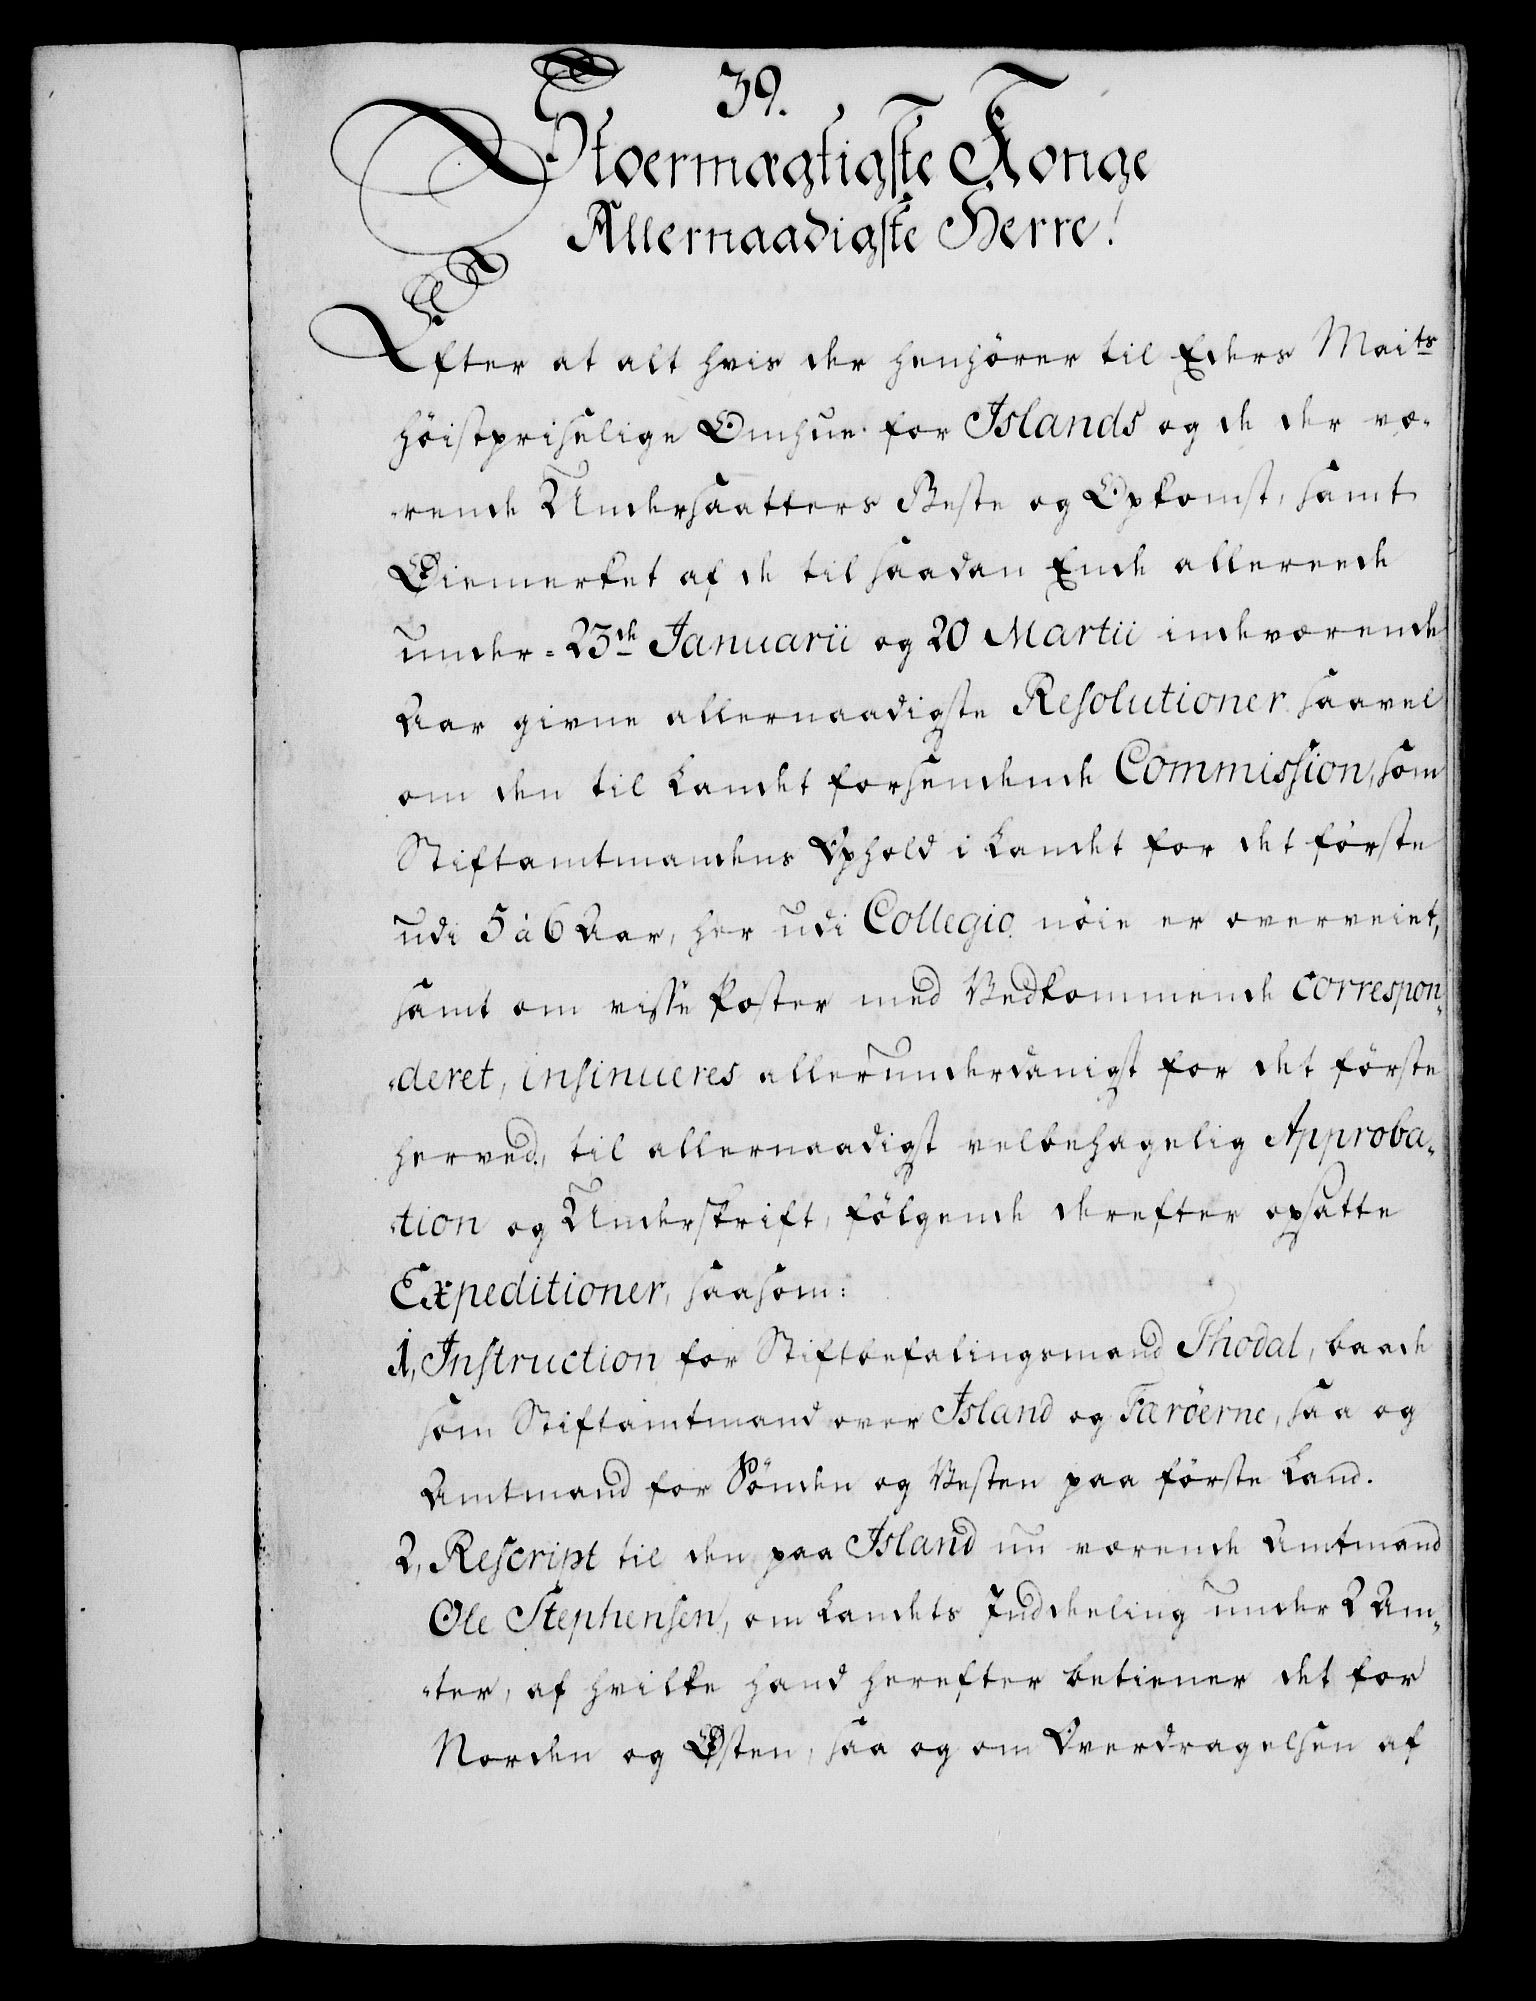 39.
Stoermægtigste Konge
Allernaadigste Herre!
Efter at alt hvis der henhörer til Eders Maits
höistpriselige Omhue for Islands og de der væ-
-rende Undersaatters Beste og Opkomst, samt
Øiemerket af de til saadan Ende allereede
under = 23de Januarii og 20 Martii indeværende
Aar givne allernaadigste Resolutioner saavel
om den til Landet forsendende Commission, som
Stiftamtmandens Ophold i Landet for det förste
udi 5 à 6 Aar, her udi Collegio nöie er overveiet,
samt om visse Poster med Vedkommende correspon-
-deret, insinueres allerunderdanigst for det förste
herved, til allernaadigst velbehagelig Approba-
-tion og Underskrift, fölgende derefter opsatte
Expeditioner, saasom:
1, Instruction for Stiftbefalingsmand Thodal, baade
som Stiftamtmand over Island og Færöerne, saa og
Amtmand for Sönden og Vesten paa förste Land.
2, Rescript til den paa Island nu værende Amtmand
Ole Stephensen, om Landets Inddeeling under 2 Am-
-ter, af hvilke hand herefter betiener det for
Norden og Østen, saa og om Overdragelsen af